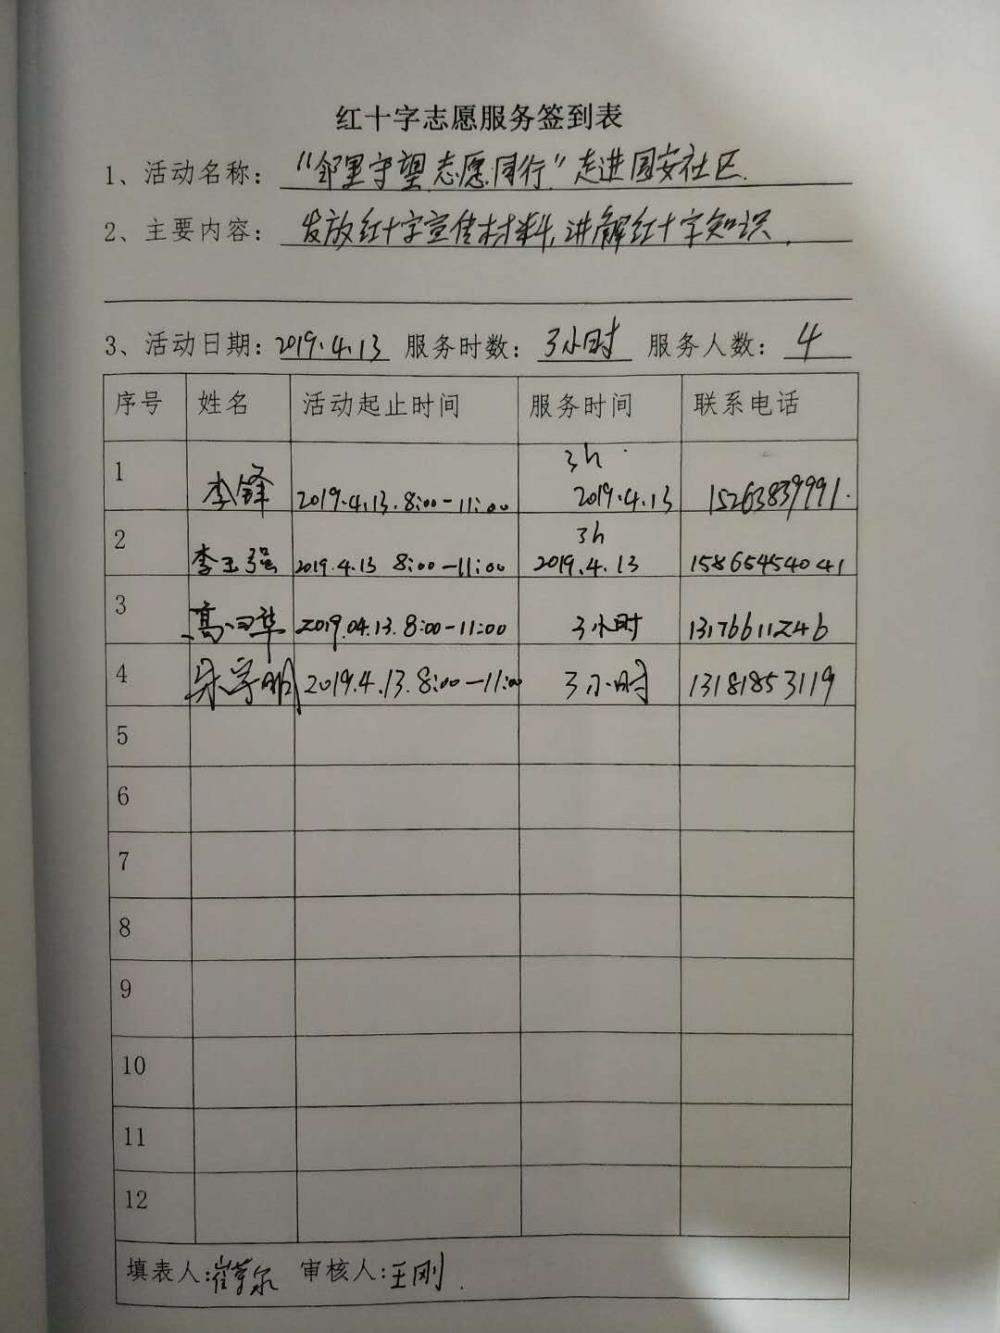 红十字志愿服务签到表
1、活动名称：“邻里守望 志愿同行”走进国安社区.
2、主要内容：发放红十字宣传材料,讲解红十字知识.
3、活动日期：2019.4.13 服务时数：3小时 服务人数：4
序号 姓名 活动起止时间 服务时间 联系电话
3h
1 李锋 2019.4.13.8:00-11:00 2019.4.13 15263839991.
3h
2 李玉强 2019.4.13 8:00-11:00 2019.4.13 15865454041
3 高 华 2019.04.13.8:00-11:00 3小时 13176611246
4 宋守明 2019.4.13.8:00-11:00 3小时 13181853119
5
6
7
8
9
10
11
12
填表人: 审核人:王刚.